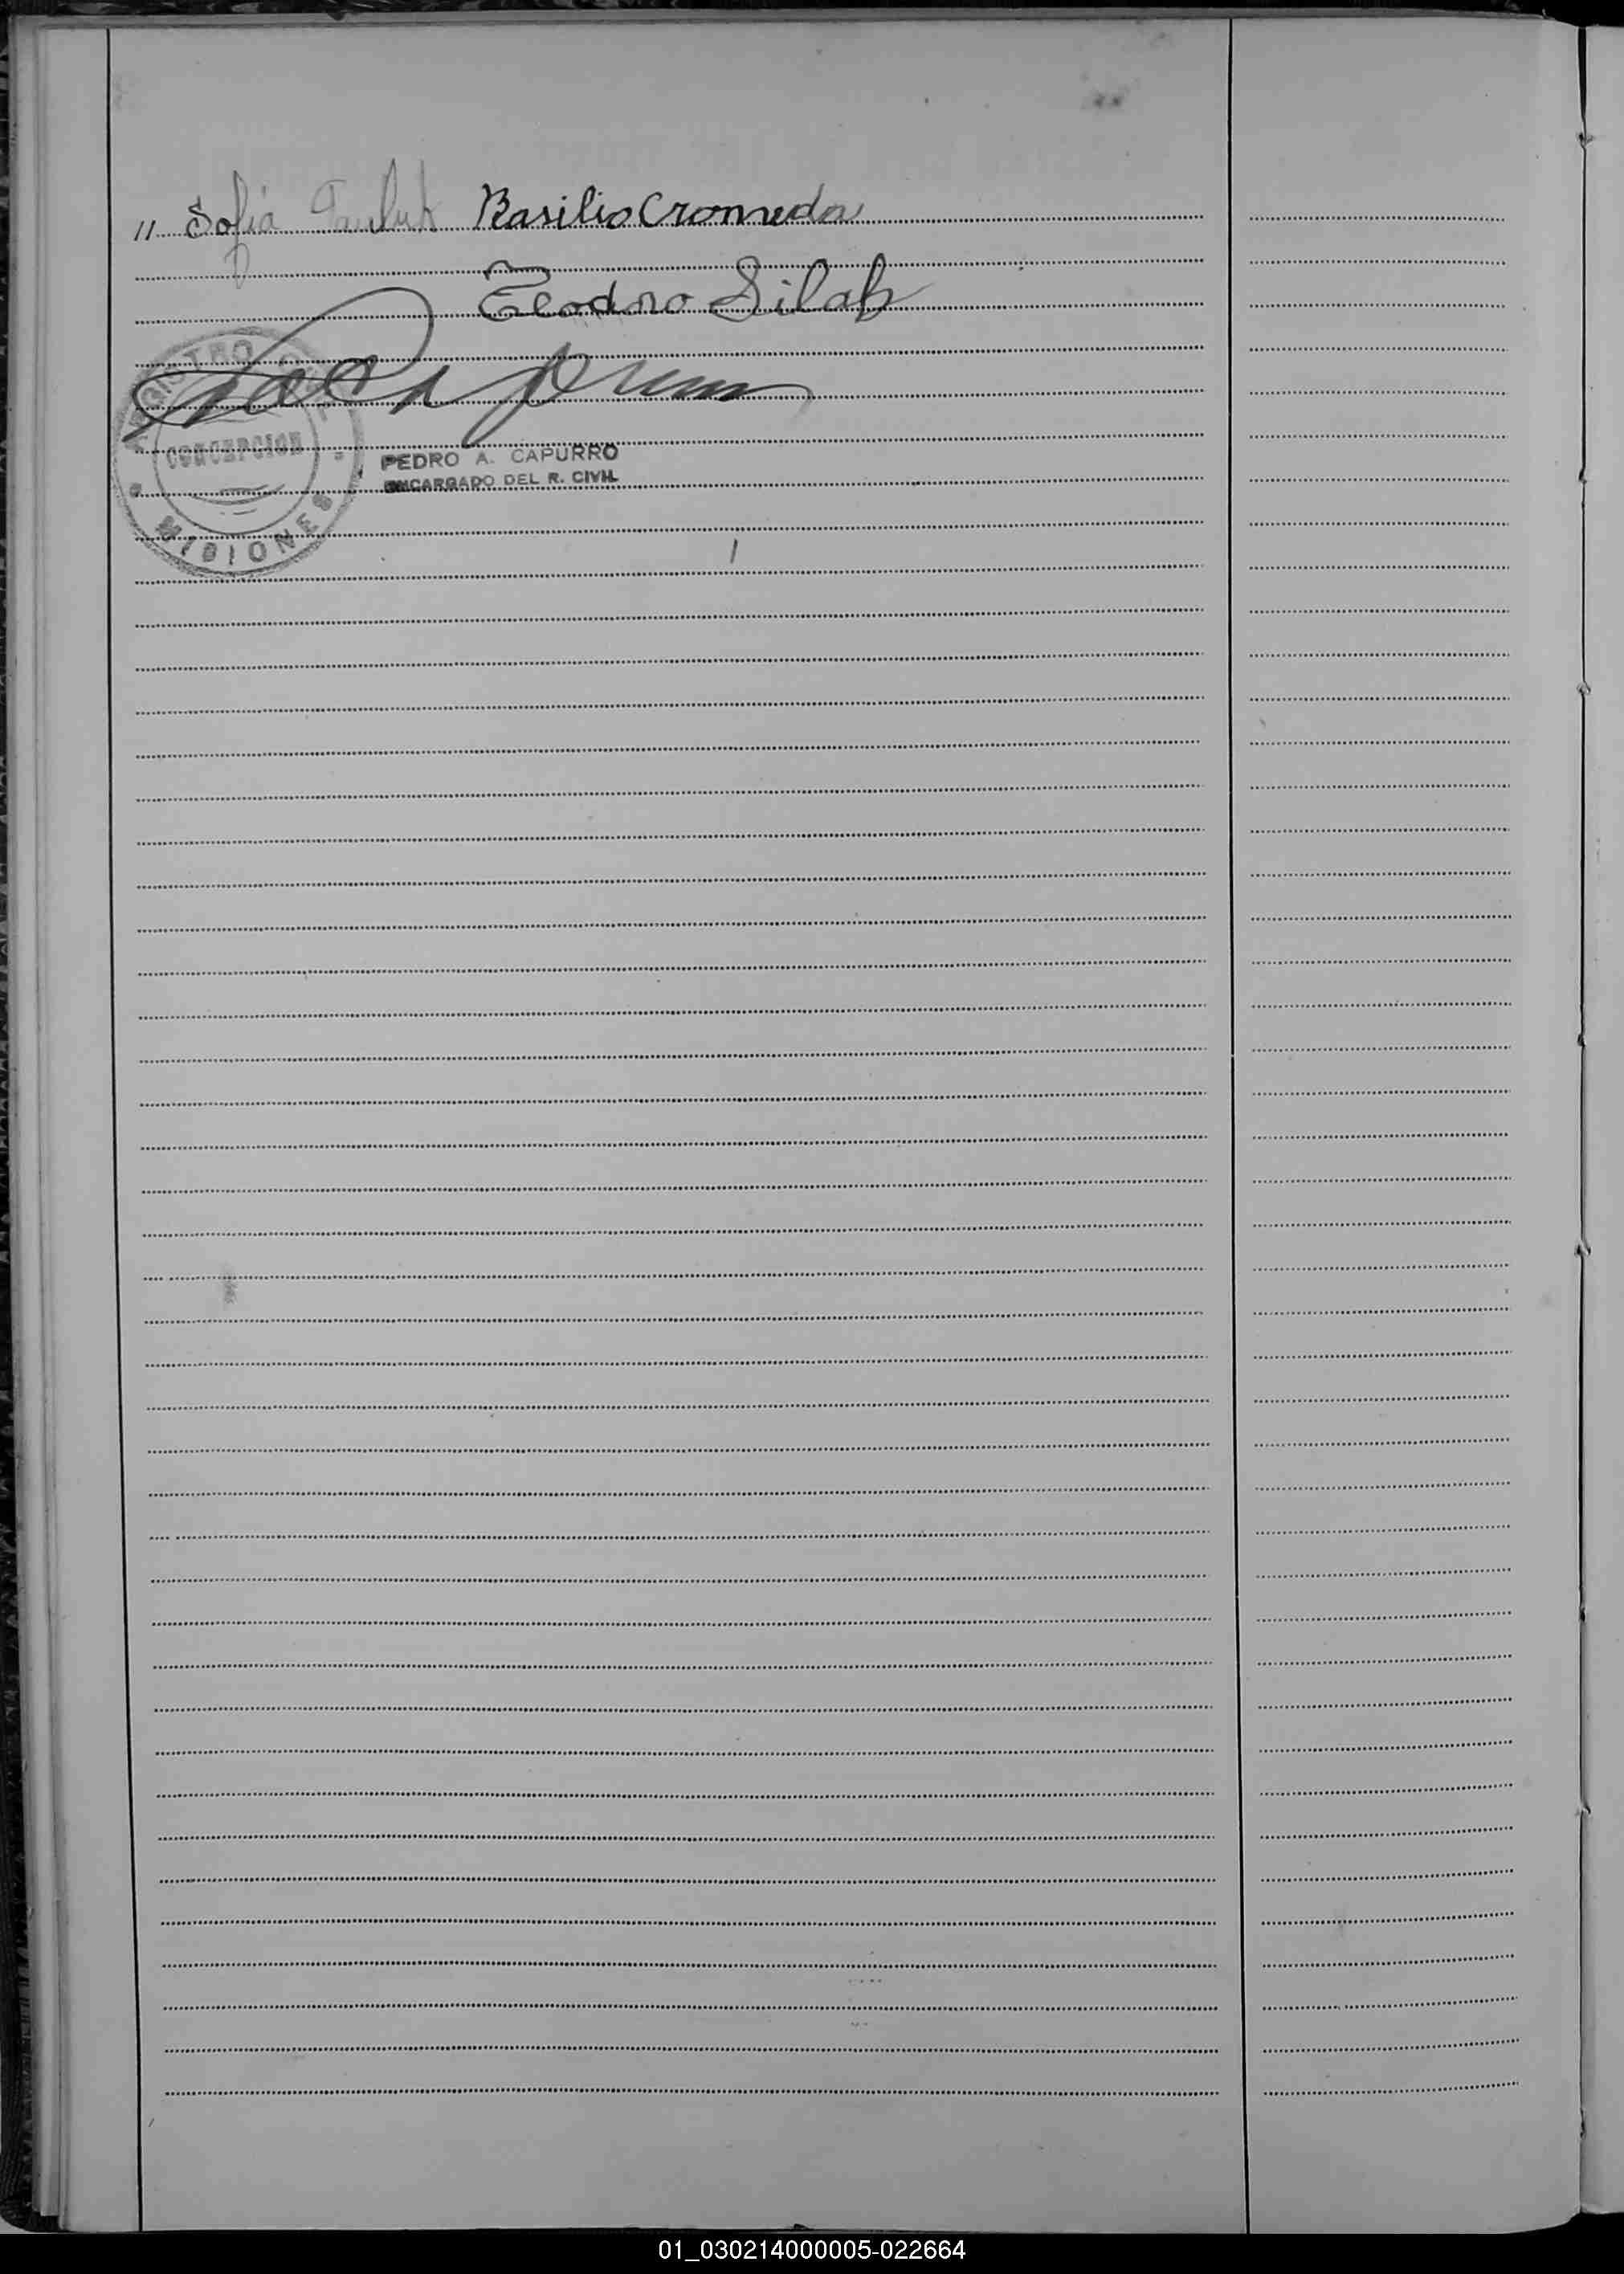 " Sofia Pauluk Basilio Cromeda
Teodoro Silab
REGISTRO
CONCEPCION
MISIONES
PEDRO A. CAPURRO
ENCARGADO DEL R. CIVIL
01_030214000005-022664